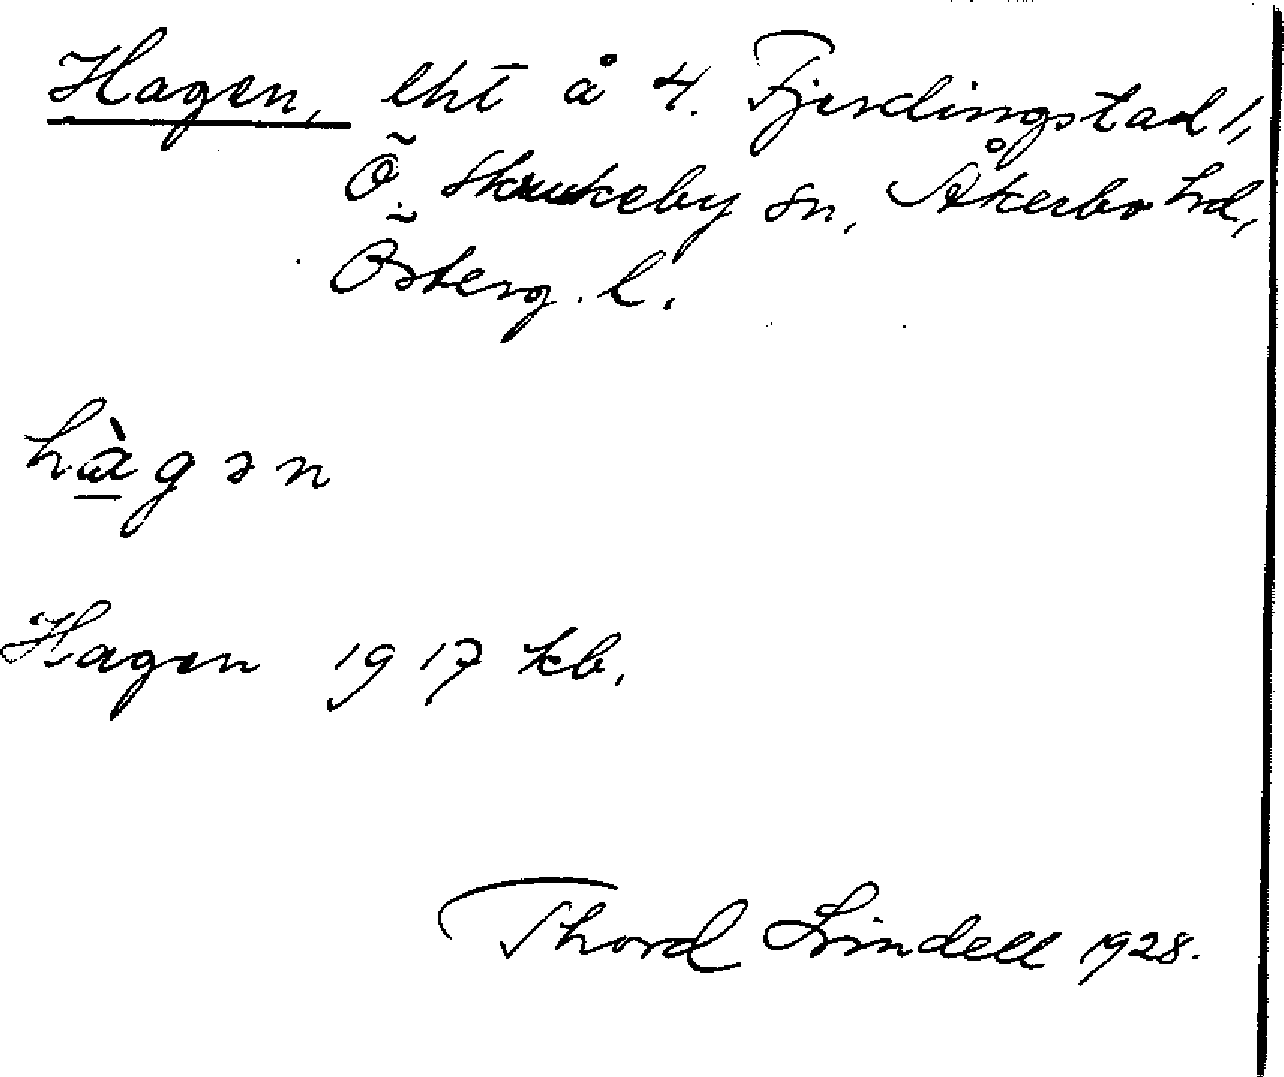 Hagen, lht å 4. Fjerdingstad 1,
Ö. Skrukeby sn, Åkerbo hd,
Österg. l.
hàgən
Hagen 1917 kb.
Thord Lindell 1928.